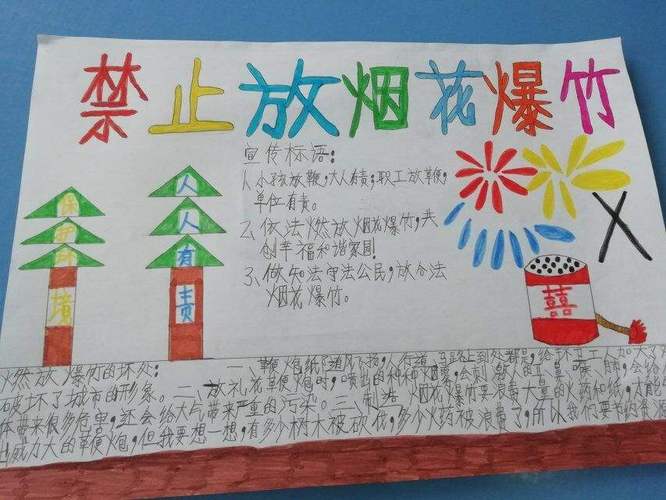 禁止放烟花爆竹
宣传标语:
1、小孩放鞭,大人有责;职工放鞭,
单位有责。
2、依法燃放烟花爆竹,共
创幸福和谐家园!
3、做知法守法公民,放合法
烟花爆竹。
保护环境
人人有责
囍
燃放爆竹的坏处:一、鞭炮纸随风飞扬,人行道、马路上到处都是,给环卫工人
破坏了城市的形象。二、放礼花鞭炮时,喷出的种种烟雾,会刺激人的
体带来很多危害,还会给大气带来严重的污染。三、制造烟花爆竹要浪费大量的火药和纸,才能
出威力大的鞭炮,但我要想一想,有多少树木被放伐,多少火药被浪费了,所以我们要节约资源